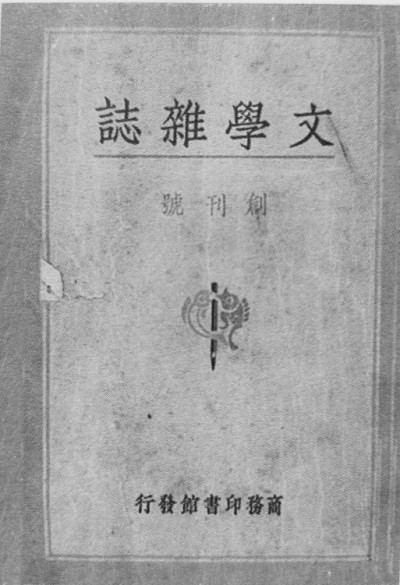 文學雜誌
創刊號
商務印書館發行